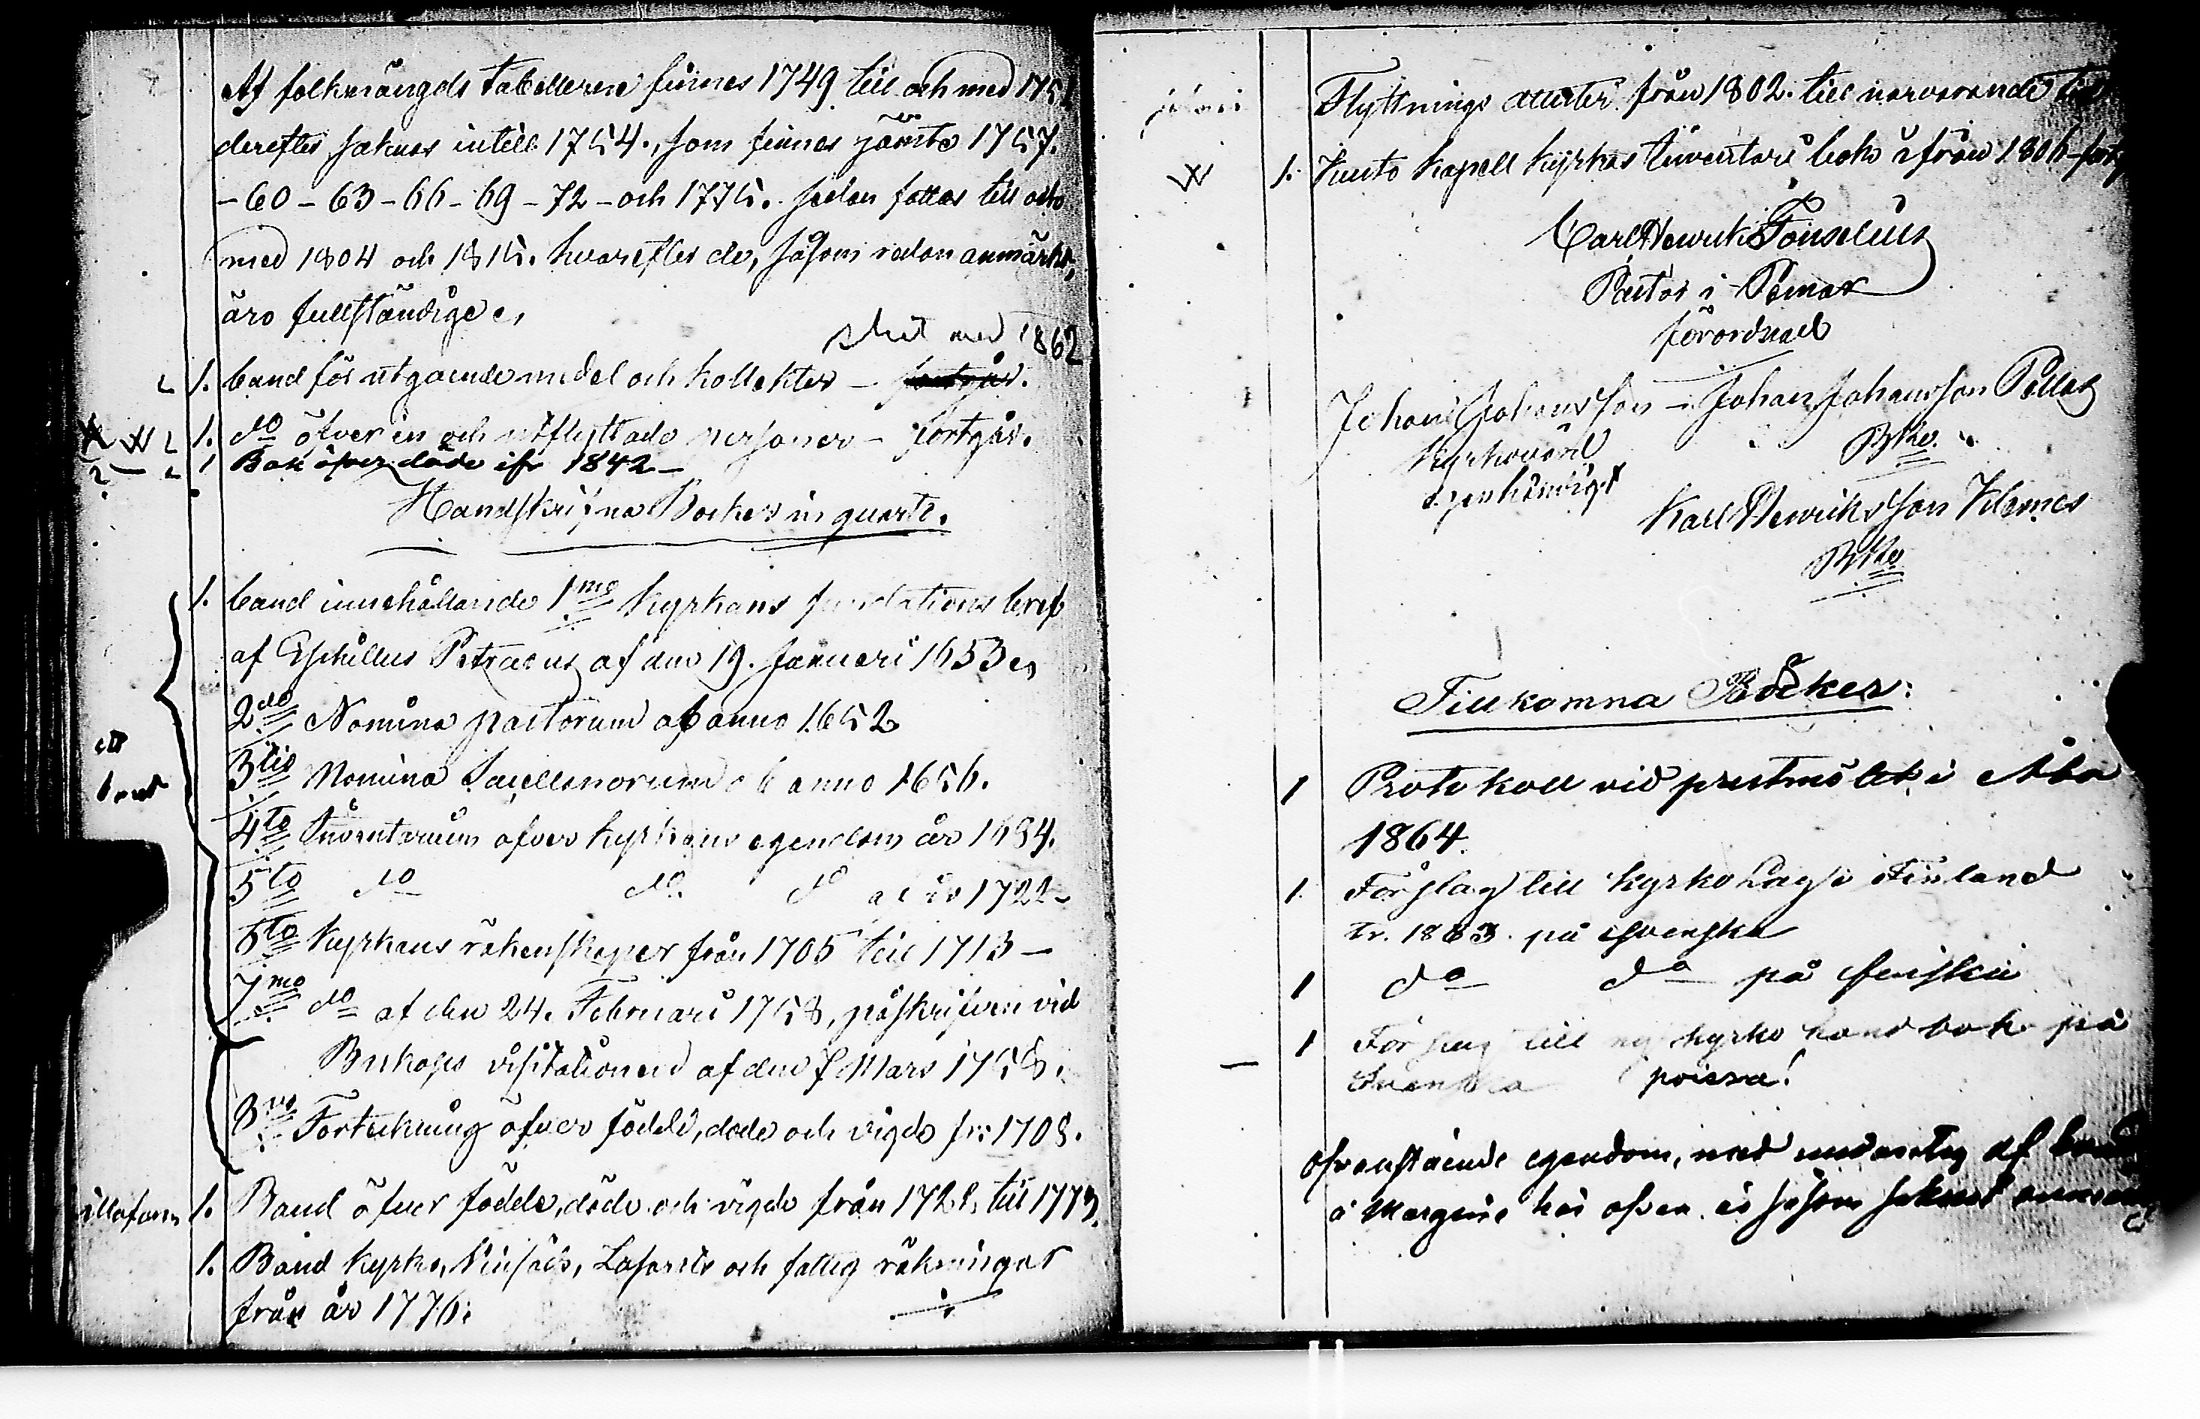 Af folkmängds tabellerne finnes 1749 till och med 1751
derefter saknas intill 1754., som finnes jämte 1757.
- 60 - 63 - 66 - 69 - 72 - och 1775. sedan fattas till och
med 1804 och 1815. hvarefter de, såsom redan anmärkt,
äro fullständige.
slut med 1862
1. band för utgående medel och kollekter - fortgår.
1. do öfver in och utflyttade personer - fortgår.
1 Bok öfver döde ifr 1842 -
Handskrifna Böcker in quarto.
1. band innehållande 1mo Kyrkans fundations bref
af Eschillus Petraeus af den 19. Januari 1653.
2do Nomina pastorum ab anno 1652
3tio Nomina Sacellanorum ab anno 1656.
4to Inventarium öfver kyrkans egendom år 1694.
5to do do do af år 1722 -
6to Kyrkans räkenskaper från 1705 till 1713 -
7mo do af den 24. Februari 1758, påskrifven vid
Biskops visitationen af den Mars 1758.
8vo Förteckning öfver födde, döde och vigde fr: 1708.
ett
band
1. Band öfver födde, döde och vigde från 1728 till 1773.
1. Band Kyrko, och fattig räkningar
från år 1776.
Flyttnings attester från 1802. till närvarande tid
1. Kapell Kyrkas Inventarii bok ifrån 1806
Carl Henrik Fonselius
Pastor i Pemar
förordnad
Johan Johansson - Johan Johansson
Kyrkovärd
egenhändigt
Karl Henriksson
Tillkomna Böcker:
1 Protokoll vid prestmötet i Åbo
1864.
1. Förslag till Kyrko Lag i Finland
tr. 1863. på Svenska
1 do do på finska
1 Förslag till ny kyrko hand bok på
Svenska poissa!
Ofvanstående egendom, med undantag af
i Margine här ofvan är såsom saknad